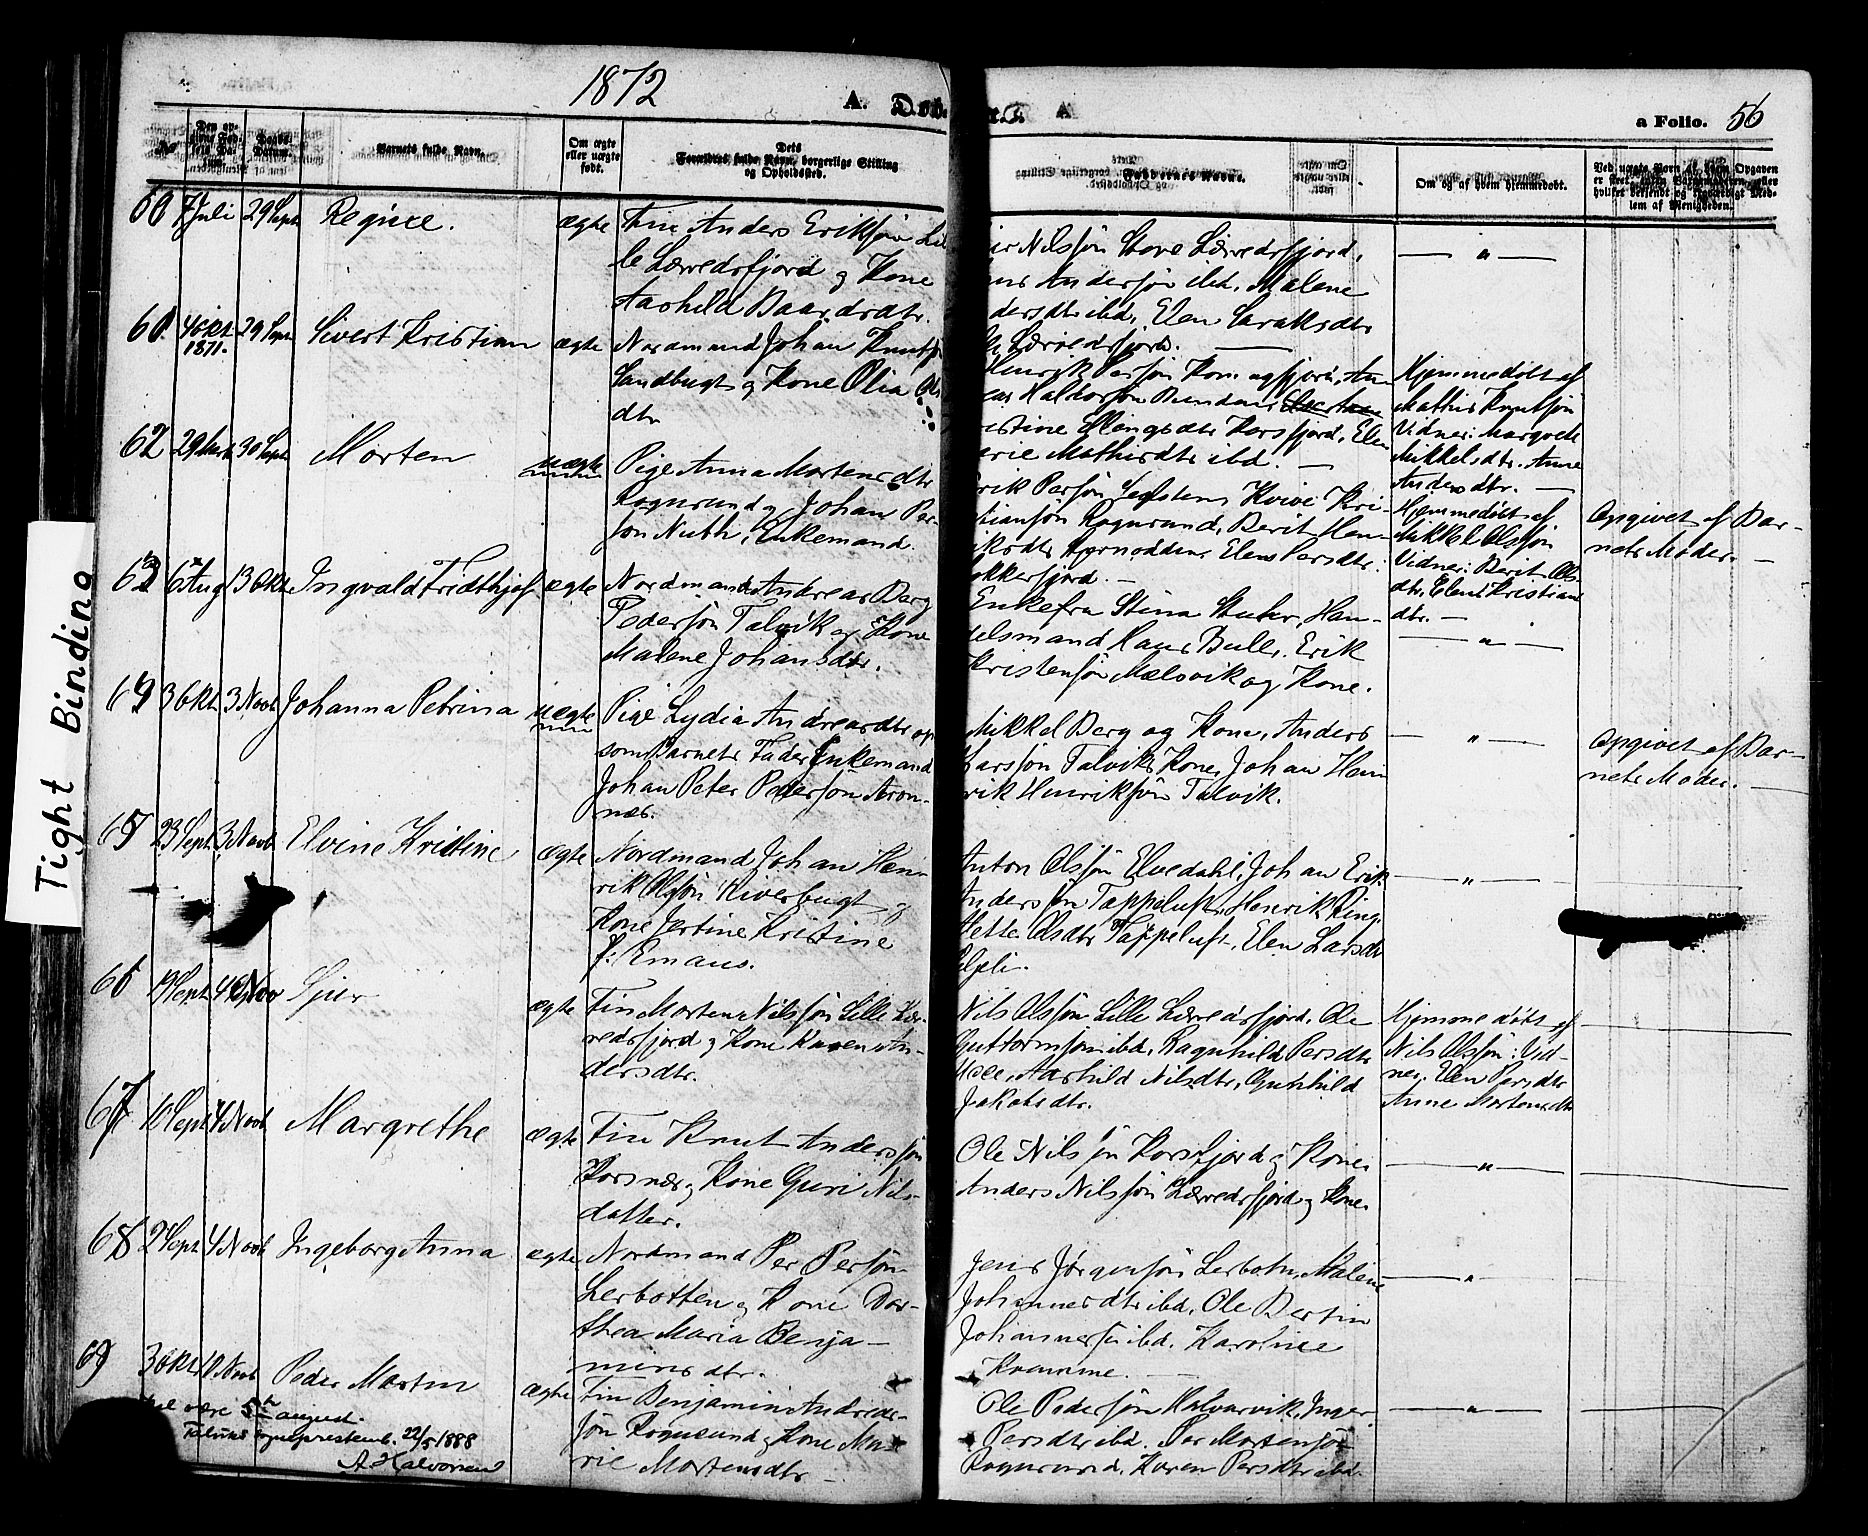 1872
A. Døb
A
a Folio. 56
No
Daabs-Datum.
Barnets fulde Navn.
Om ægte eller uægte født.
Dets Forældres fulde Navn, borgerlige Stilling og Opholdssted.
Faddernes Navne.
Om og af hvem hjemmedøbt.
60 7 Juli 29 Sept Regine. ægte Fin Anders Eriksøn Lil
le Lerredsfjord og Kone
Aashild Baardsdtr.
Nilssøn Store Lerredsfjord,
Andersøn ibd. Malene
dersdtr ibd, Elen
Lerredsfjord.
— " —
61 4 Okt 1871. 29 Sept Sivert Kristian ægte Nordmand Johan Knuts
Sandbugt og Kone Olia Ols
dtr
Henrik Persøn
Haldorsøn
istine Korsfjord, Elen
erie Mathisdtr ibd. —
Hjemmedøbt af
Mathis Knutsøn
Vidner: Margrete
Mikkelsdtr. Anne
Andersdtr. —
62 29 30 Sept Morten uægte Pige Anna Mortensdtr
Rognsund og Johan Per-
søn Nuth, Enkemand.
rik Persøn Kri-
stiansøn Rognsund, Berit Hen-
riksdtr Elen Persdtr.
okkerfjord. —
Hjemmedøbt af
Mikkel Olssøn
Vidner: Berit Ols-
dtr, Elen Kristian
dtr. —
Opgivet af Bar-
nets Moder. —
63 6 Aug 13 Okt Ingvald Fridthjof ægte Nordmand Andreas Berg
Pedersøn Talvik og Kone
Malene Johansdtr.
Enkefru Stina Han-
delsmand Hans Bull. Erik
Kristensøn Mælsvik og Kone.
— " —
64 3 Okt 3 Novb Johanna Petrina uægte Pige Lydia Andreasdtr op
som Barnets Fader Enkemand
Johan Peter Pedersøn Aron-
næs.
Mikkel Berg og Kone, Anders
Larssøn Talvik, Kone, Johan Hen
rik Henriksøn Talvik.
— " —
Opgivet af Bar-
nets Moder. —
65 23 Sept 3 Novb Elvine Kristine ægte Nordmand Johan Hen-
rik Olssøn Kiverbugt og
Kone Jertine Kristine
f: Emaus.
Anton Olssøn Elvedahl, Johan Erik
Andersøn Tappeluft, Henrik Ring
Mette Olsdtr Tappeluft, Elen Larsdtr
— " —
66 19 Sept 4 Nov ægte Fin Morten Nilssøn Lille Ler-
redsfjord og Kone Karen An-
dersdtr.
Nils Olssøn Lille Lerredsfjord, Ole
Guttormsøn ibd, Ragnhild Persdtr
Aashild Nilsdtr, Gunhild
Jakobsdtr.
Hjemmedøbt af
Nils Olssøn: Vid-
ner: Elen Persdtr
Anne Mortensdtr
67 10 Sept 4 Novb Margrethe ægte Fin Knut Anderssøn
Korsnæs og Kone Guri Nils-
datter.
Ole Nilssøn Korsfjord og Kone.
Anders Nilssøn Lerredsfjord og Kone.
— " —
68 2 Sept 4 Novb Ingeborg Anna ægte Nordmand Per Persøn
Lerbotten og Kone Dor-
thea Maria Benja-
minsdtr.
Jens Jørgensøn Lerbotn, Malene
Johannesdtr ibd, Ole Bertin
Johannessøn ibd. Karoline
Kromme. —
— " —
69 3 Okt 10 Novb Peder Martin ægte Fin Benjamin Andreas-
søn Rognsund og Kone Ma-
rie Mortensdtr —
Ole Pedersøn Halvarvik, Inger
Persdtr ibd. Per Mortensøn
Rognsund, Karen Persdtr ibd.
— " —
være 5te august.
Talviks Sognepræstemb. 22/5 1888
A Halvorsen
Tight Binding